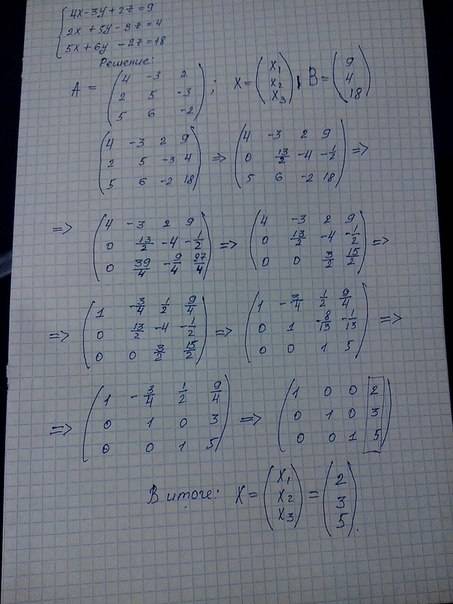 4x-3y+2z=9
2x+5y-3z=4
5x+6y-2z=18
Решение:
A = (4 -3 2; 2 5 -3; 5 6 -2); X = (x₁; x₂; x₃), B = (9; 4; 18)
(4 -3 2 9; 2 5 -3 4; 5 6 -2 18) => (4 -3 2 9; 0 13/2 -4 -1/2; 5 6 -2 18) =>
=> (4 -3 2 9; 0 13/2 -4 -1/2; 0 39/4 -9/4 27/4) => (4 -3 2 9; 0 13/2 -4 -1/2; 0 0 3/2 15/2) =>
=> (1 -3/4 1/2 9/4; 0 13/2 -4 -1/2; 0 0 3/2 15/2) => (1 -3/4 1/2 9/4; 0 1 -8/13 -1/13; 0 0 1 5) =>
=> (1 -3/4 1/2 9/4; 0 1 0 3; 0 0 1 5) => (1 0 0 2; 0 1 0 3; 0 0 1 5)
В итоге: X = (x₁; x₂; x₃) = (2; 3; 5).